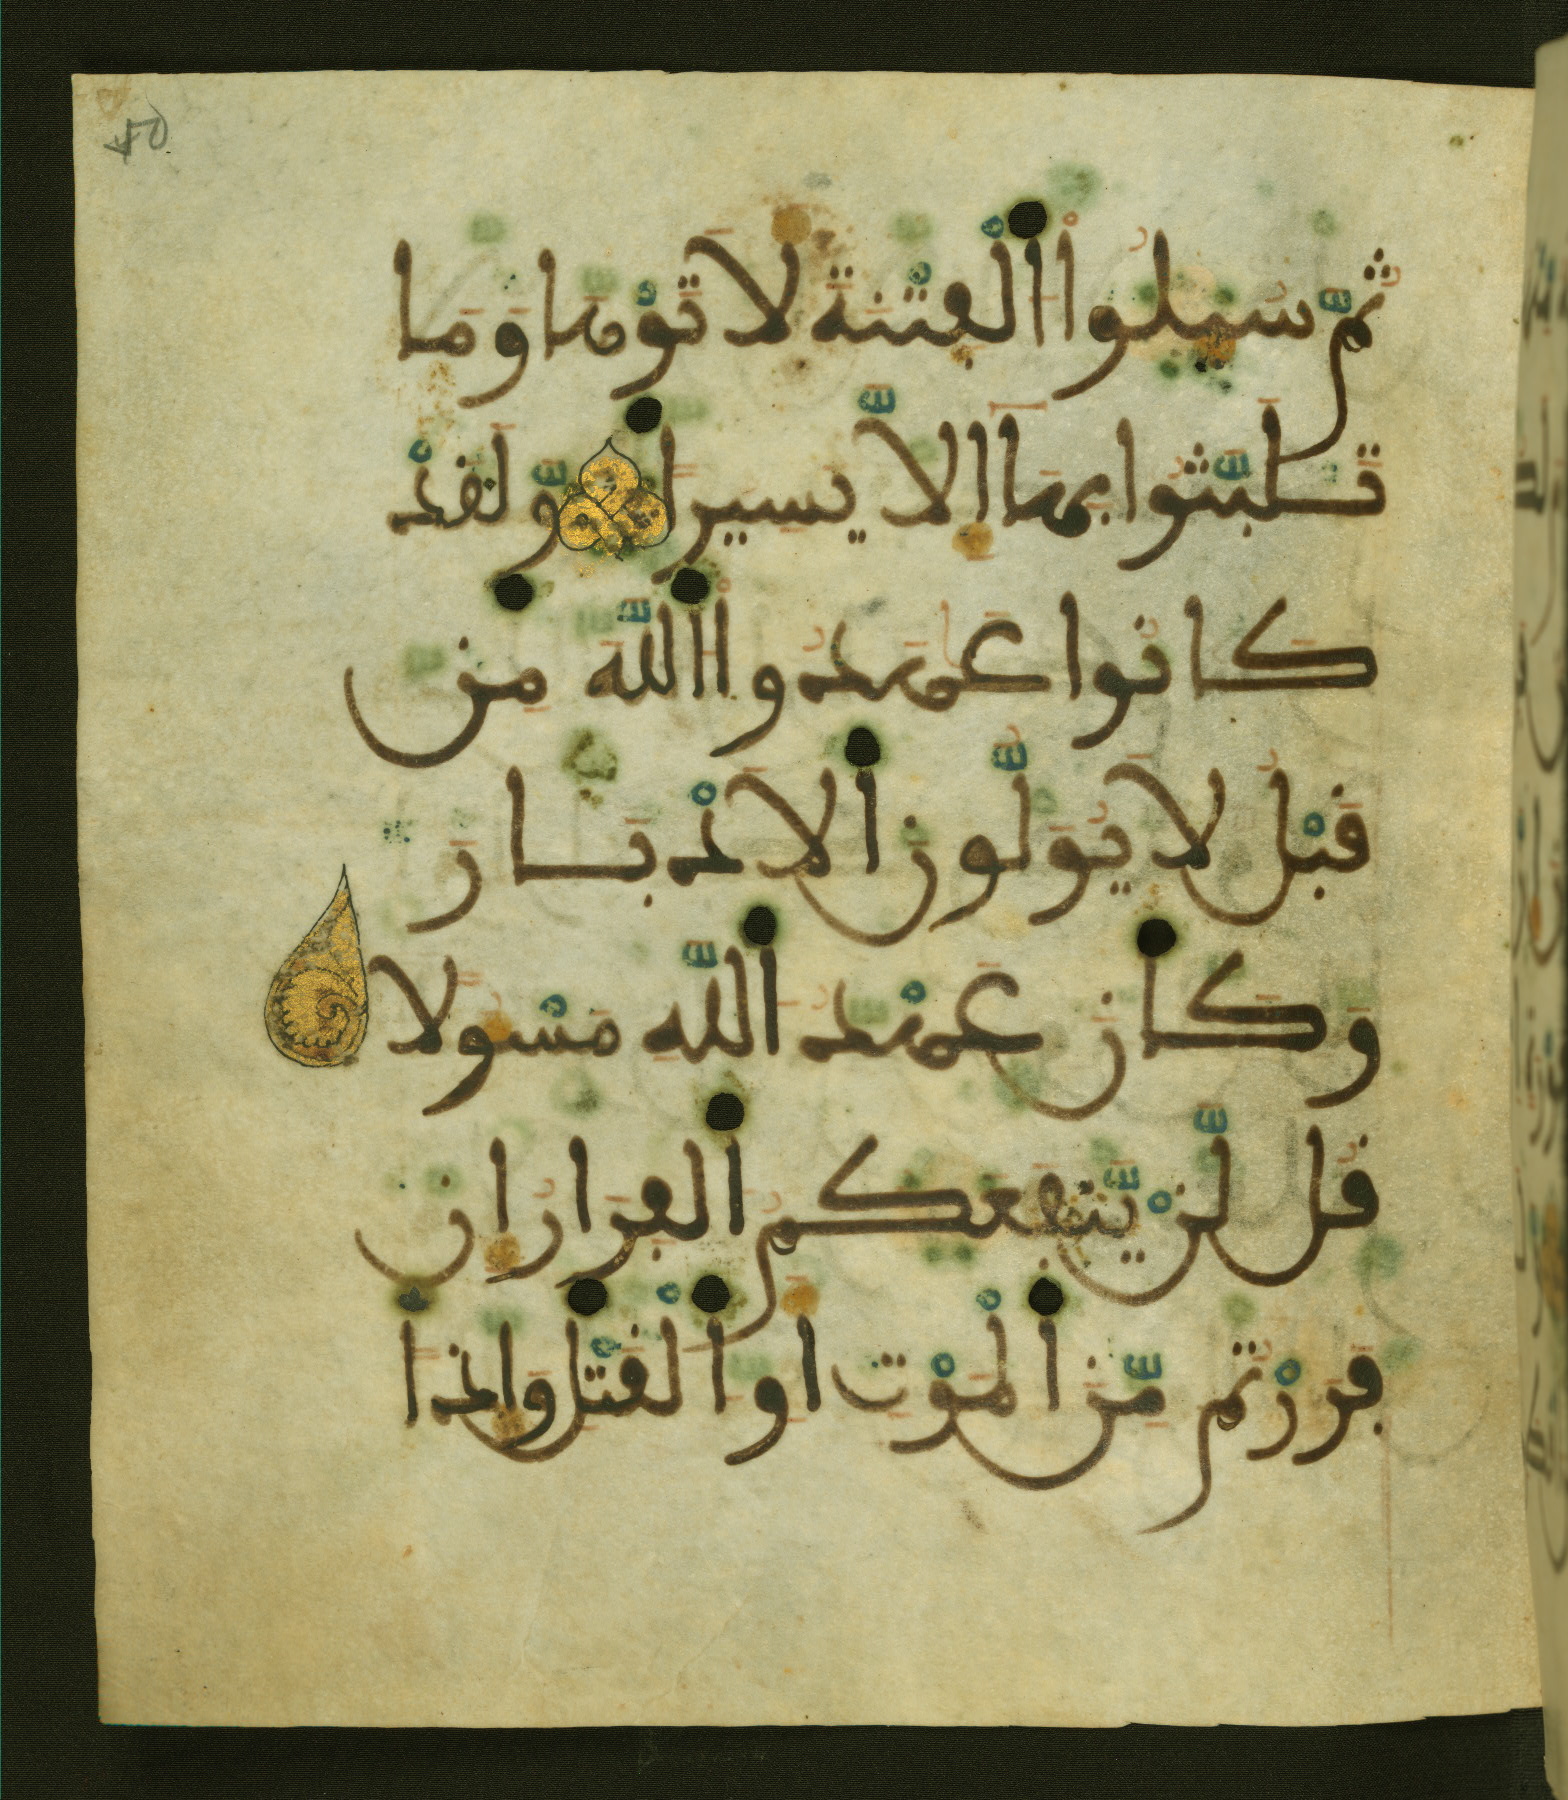 ثُمَّ سُيِلُوا۟ اُ۬لْفِتْنَةَ لَأَتَوْهَا وَمَا
تَلَبَّثُوا۟ بِهَآ إِلَّا يَسِيراً وَلَقَدْ
كَانُوا۟ عَٰهَدُوا۟ اُ۬للَّهَ مِن
قَبْلُ لَا يُوَلُّونَ اَ۬لَادْبَٰرَ
وَكَانَ عَهْدُ اُ۬للَّهِ مَسْـُٔولاً
قُل لَّنْ يَّنفَعَكُمُ اُ۬لْفِرَارُ إِن
فَرَرْتُم مِّنَ اَ۬لْمَوْتِ أَوِ اِ۬لْقَتْلِ وَإِذاً